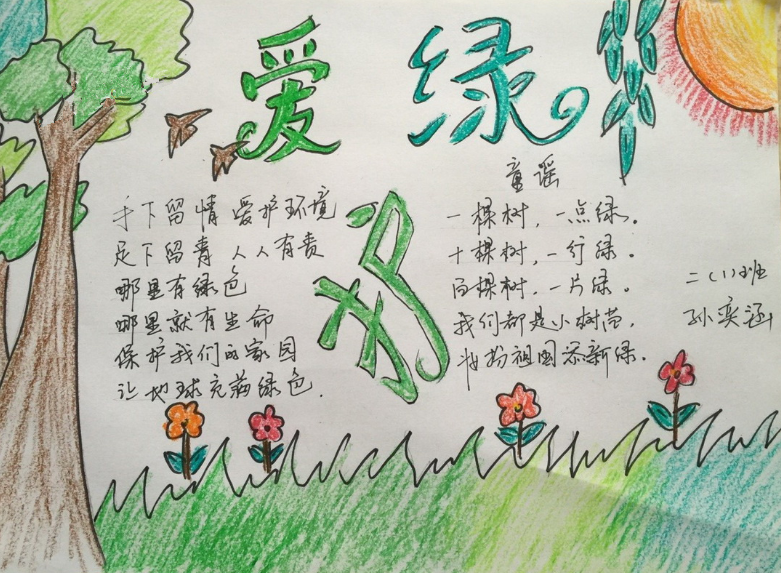 爱绿护
手下留情 爱护环境
足下留青 人人有责
哪里有绿色
哪里就有生命
保护我们的家园
让地球充满绿色.
童谣
一棵树，一点绿。
十棵树，一行绿。
百棵树，一片绿。
我们都是小树苗，
妆扮祖国添新绿。
二（1）班
孙奕涵